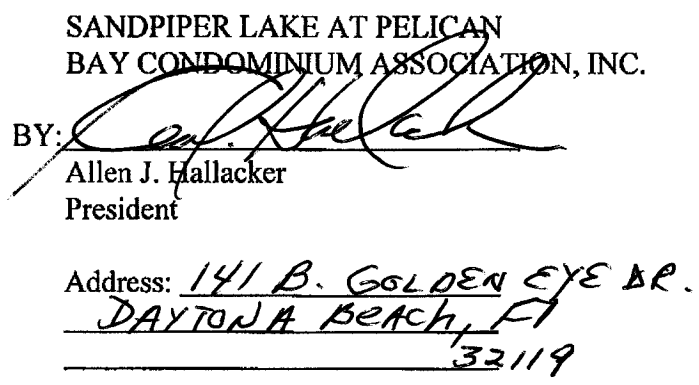 SANDPIPER LAKE AT PELICAN
BAY CONDOMINIUM ASSOCIATION, INC.
BY:
Allen J. Hallacker
President
Address: 141 B. GOLDEN EYE DR.
DAYTONA BEACh, Fl
32119